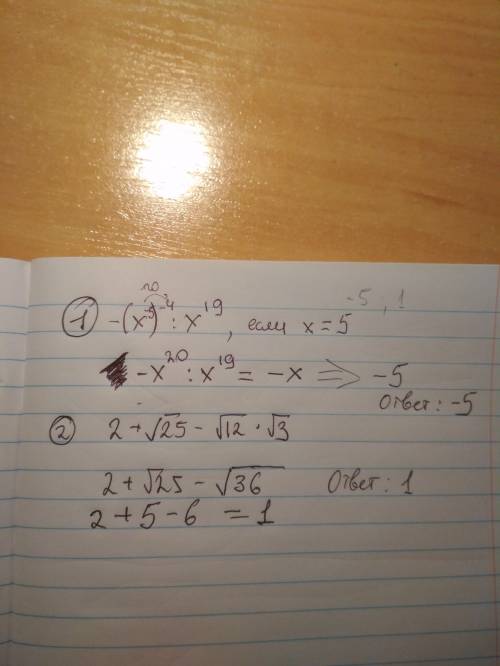 20
① -(x⁻⁵)⁻⁴ : x¹⁹, если x = 5
-5 ; 1
-x²⁰ : x¹⁹ = -x ⟹ -5
Ответ: -5
② 2 + √25 - √12 · √3
2 + √25 - √36
Ответ: 1
2 + 5 - 6 = 1